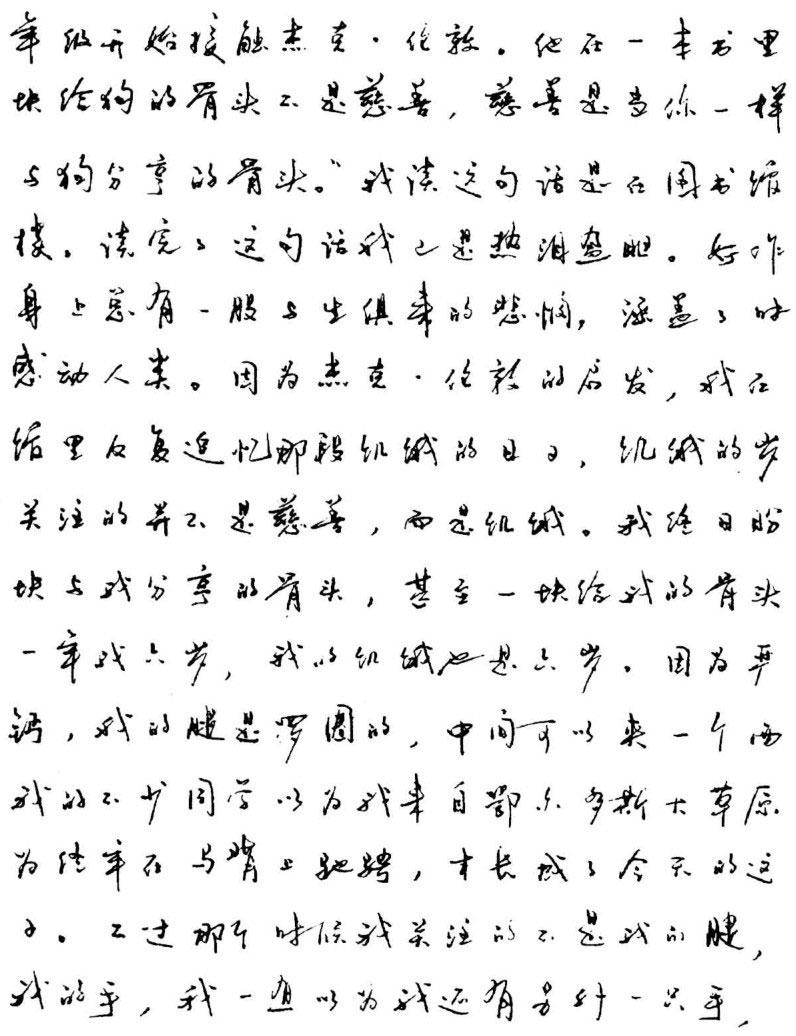 年级开始接触杰克·伦敦。他在一本书里
块给狗的骨头不是慈善，慈善是当你一样
与狗分享的骨头。”我读这句话是在图书馆
楼。读完了这句话我已是热泪盈眶。好作
身上总有一股与生俱来的悲悯，涵盖了时
感动人类。因为杰克·伦敦的启发，我在
馆里反复追忆那段饥饿的日子，饥饿的岁
关注的并不是慈善，而是饥饿。我终日盼
块与我分享的骨头，甚至一块给我的骨头
一年我六岁，我的饥饿也是六岁。因为严
钙，我的腿是罗圈的，中间可以夹一个西
我的不少同学以为我来自鄂尔多斯大草原
为终年在马背上驰骋，才长成了今天的这
子。不过那个时候我关注的不是我的腿，
我的手，我一直以为我还有另外一只手，